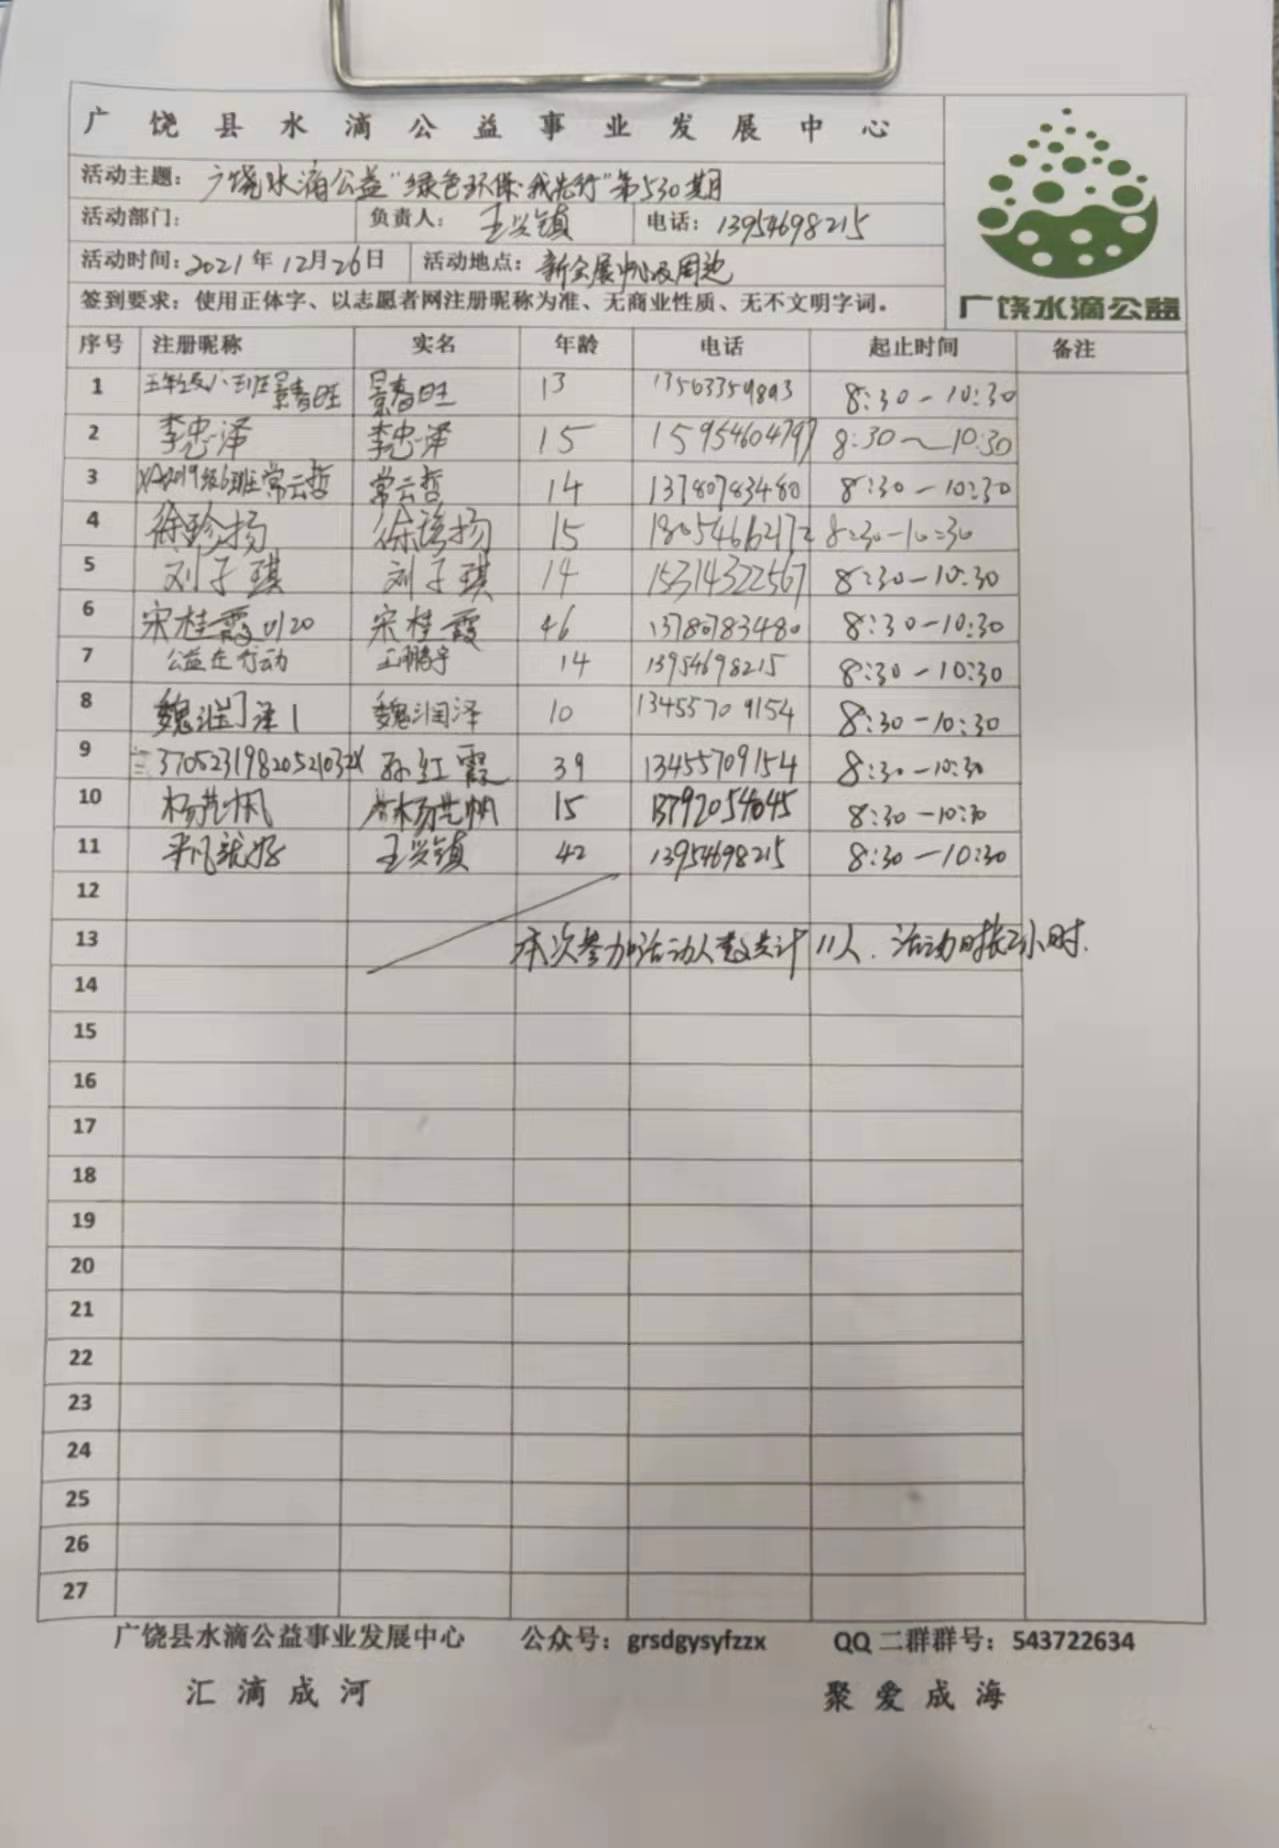 广饶县水滴公益事业发展中心
活动主题：广饶水滴公益"绿色环保·我先行"第530期
活动部门： 负责人：王兴镇 电话：13954698215
活动时间：2021年12月26日 活动地点：新会展中心及周边
签到要求：使用正体字、以志愿者网注册昵称为准、无商业性质、无不文明字词。
广饶水滴公益
序号 注册昵称 实名 年龄 电话 起止时间 备注
1 五年级八班景春旺 景春旺 13 13563359893 8:30-10:30
2 李忠泽 李忠泽 15 15954604797 8:30～10:30
3 2019级6班常云哲 常云哲 14 13780783480 8:30-10:30
4 徐珍扬 徐 扬 15 180546162172 8:30-10:30
5 刘子琪 刘子琪 14 15314322567 8:30-10:30
6 宋桂霞1120 宋桂霞 46 13780783480 8:30-10:30
7 公益在行动 王鹏宇 14 13954698215 8:30-10:30
8 魏润泽1 魏润泽 10 13455709154 8:30-10:30
9 37052319820521032X 孙红霞 39 13455709154 8:30-10:30
10 杨艺帆 杨艺帆 15 13792054645 8:30-10:30
11 平凡就好 王兴镇 42 13954698215 8:30-10:30
12
13 本次参加活动人数共计11人.活动时长2小时.
14
15
16
17
18
19
20
21
22
23
24
25
26
27
广饶县水滴公益事业发展中心 公众号：grsdgysyfzzx QQ二群群号：543722634
汇滴成河 聚爱成海